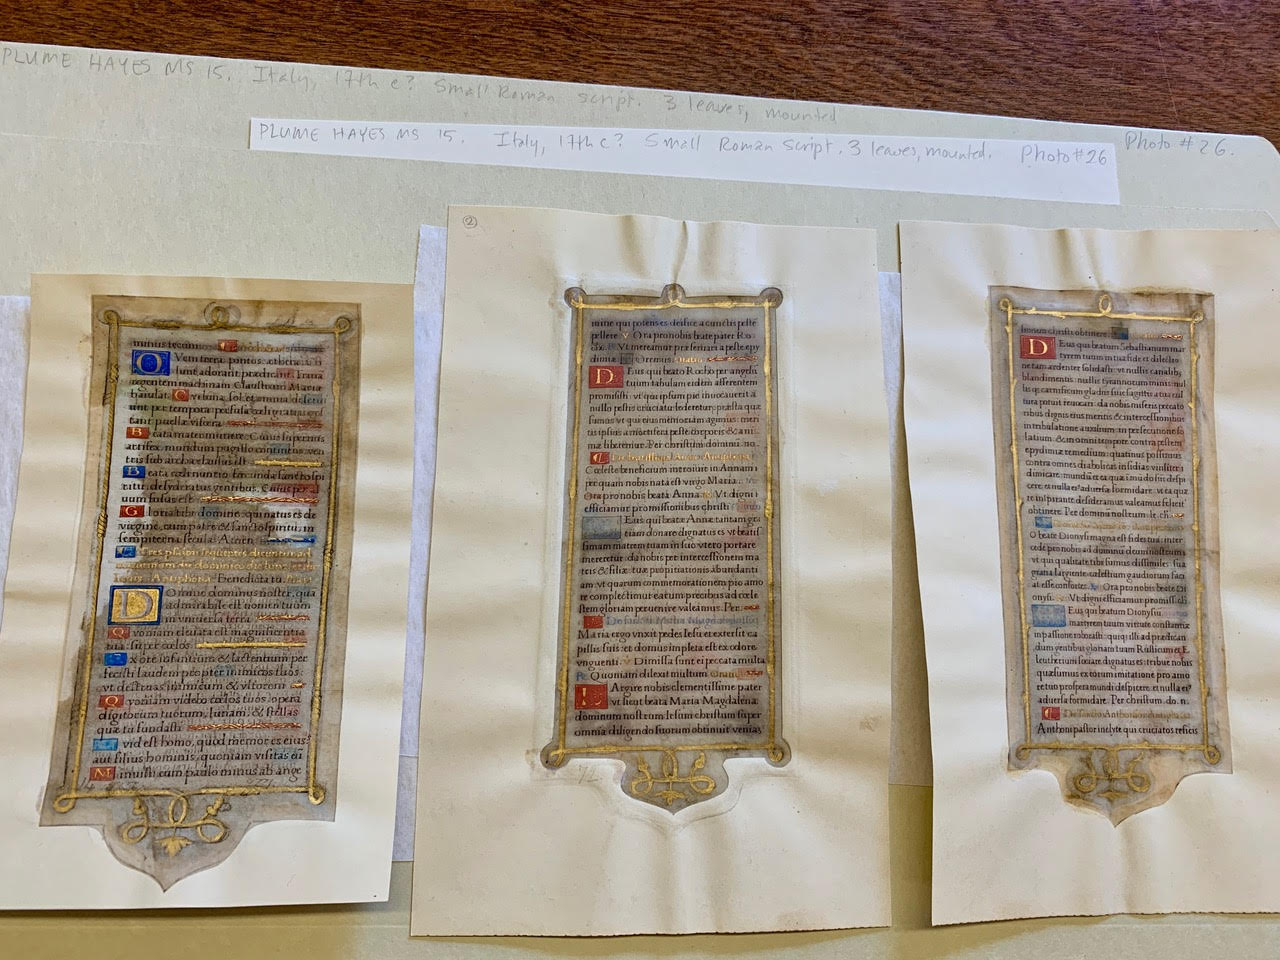 PLUME HAYES MS 15. Italy, 17th c? Small Roman script. 3 leaves, mounted
Photo #26.
PLUME HAYES MS 15. Italy, 17th c? Small Roman Script. 3 leaves, mounted. Photo #26
minus tecum
Vem terra pontus ethera co
lunt adorant prædicant. Trina
regentem machinam Claustrum Mariæ
baiulat. Cui luna, sol, et omnia deserui
unt per tempora perfusa cæli gratia gest
tant puellæ viscera
Beata mater munere, Cuius supernus
artifex, mundum pugillo continens, ven
tris sub archa clausus est.
Beata cæli nuntio fæcunda sancto spi
ritu, desyderatus gentibus, Cuius per al
uum fusus est
Gloria tibi domine, qui natus es de
virgine, cum patre & sancto spiritu, in
sempiterna secula. Amen.
Tres psalmi sequentes dicuntur
Antiphona Benedicta tu
Domine dominus noster, quā
admirabile est nomen tuum
in vniuersa terra
Quoniam eleuata est magnificentia
tua: super cælos
Ex ore infantium & lactentum per
fecisti laudem propter inimicos tuos:
vt destruas inimicum & vltorem
Quoniam videbo cælos tuos, opera
digitorum tuorum, lunam, & stellas
quæ tu fundasti
Quid est homo, quod memor es eius:
aut filius hominis, quoniam visitas eū
Minuisti eum paulo minus ab ange
②
mine qui potens es deifice a cunctis peste
pellere. V Ora pro nobis beate pater Ro
che. R Vt mereamur preseruari a peste epy
dimiæ Oremus. Oratio
Deus qui beato Rocho per angeli
tuum tabulam eidem afferentem
promisisti: vt qui ipsum pie inuocauerit a
nullo pestis cruciatu læderetur: præsta quæ
sumus vt qui eius memoriam agimus: meri
tis ipsius a mortifera peste corporis & ani
mæ liberemur. Per christum dominū. no
Cæleste beneficium introiuit in Annam
per quam nobis nata est virgo Maria.
Ora pro nobis beata Anna. Vt digni
efficiamur promissionibus christi
Deus qui beatæ Annæ tantam gra
tiam donare dignatus es vt beatis
simam matrem tuam in suo vtero portare
mereretur: da nobis per intercessionem ma
tris & filiæ: tuæ propitiationis abundanti
am. vt quarum commemorationem pio amo
re complectimur earum precibus ad cæle
stem gloriam peruenire valeamus. Per.
De sancta Maria Magdalena
Maria ergo vnxit pedes Iesu et extersit ca
pillis suis: et domus impleta est ex odore
vnguenti. V Dimissa sunt ei peccata multa
R Quoniam dilexit multum Oratio
Largire nobis clementissime pater
vt sicut beata Maria Magdalena:
dominum nostrum Iesum christum super
omnia diligendo suorum obtinuit veniā
Deus qui beatum Sebastianum mar
tyrem tuum in tua fide et dilectio
ne tam ardenter solidasti: vt nullis carnalib,
blandimentis: nullis tyrannorum minis: nul
lis
ribus dignis eius meritis & intercessionibus
in tribulatione auxilium: in persecutione so
latium: & in omni tempore contra pestem
epydimiæ remedium: quatinus possimus
contra omnes diabolicas insidias viriliter
dimicare: mundum et ea quæ in mundo sunt despi
cere et nulla eius aduersa formidare: vt ea quæ
te inspirante desideramus valeamus feliciter
obtinere. Per dominum nostrum Ie. ch.
O beate Dionysi magna est fides tua: inter
cede pro nobis ad dominū deum nostrum
vt qui qualitate tibi sumus dissimiles: sua
gratia largiente cælestium gaudiorum faci
at esse consortes. Ora pro nobis beate Di
onysi. Vt digni efficiamur promissi. ch.
Deus qui beatum Dionysiū
martyrem tuum virtute constantiæ
in passione roborasti: quique illi ad prædican
dum gentibus gloriam tuam Rusticum et E
leutherium sociare dignatus es: tribue nobis
quæsumus ex eorum imitatione pro amo
re tuo prospera mundi despicere, et nulla eius
aduersa formidare. Per christum. do. n.
De sancto Anthonio
Anthoni pastor inclyte qui cruciatos reficis